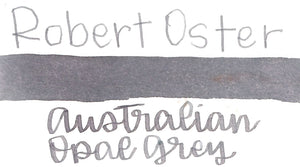 Robert Oster
Australian
Opal Grey